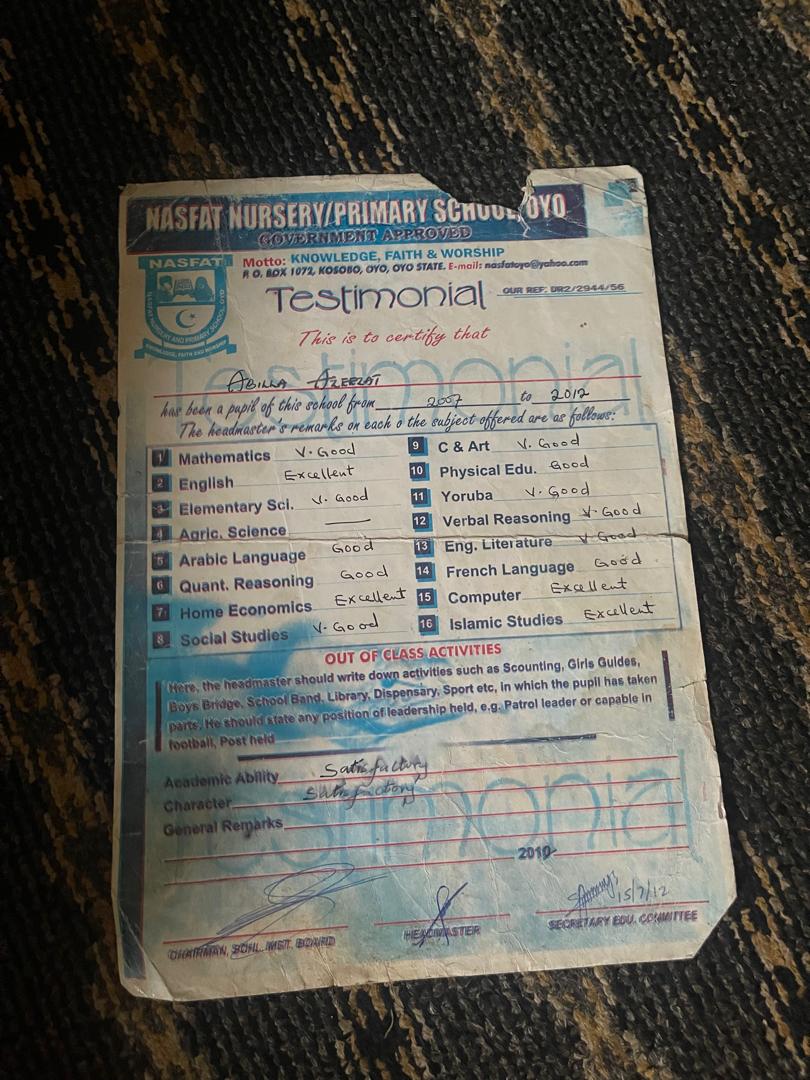 NASFAT NURSERY/PRIMARY SCHOOL, OYO
GOVERNMENT APPROVED
NASFAT
NASFAT NURSERY AND PRIMARY SCHOOL, OYO
KNOWLEDGE, FAITH AND WORSHIP
Motto: KNOWLEDGE, FAITH & WORSHIP
P. O. BOX 1072, KOSOBO, OYO, OYO STATE. E-mail: nasfatoyo@yahoo.com
Testimonial
OUR REF: DR2/2944/56
This is to certify that
Testimonial
ABILLA AZEEZAT
has been a pupil of this school from 2007 to 2012
The headmaster's remarks on each o the subject offered are as follows:
1 Mathematics V. Good
2 English Excellent
3 Elementary Sci. V. Good
4 Agric. Science —
5 Arabic Language Good
6 Quant. Reasoning Good
7 Home Economics Excellent
8 Social Studies V. Good
9 C & Art V. Good
10 Physical Edu. Good
11 Yoruba V. Good
12 Verbal Reasoning V. Good
13 Eng. Literature V. Good
14 French Language Good
15 Computer Excellent
16 Islamic Studies Excellent
OUT OF CLASS ACTIVITIES
Here, the headmaster should write down activities such as Scounting, Girls Guides,
Boys Bridge, School Band, Library, Dispensary, Sport etc, in which the pupil has taken
parts. He should state any position of leadership held, e.g. Patrol leader or capable in
football, Post held
Academic Ability Satisfactory
Character Satisfactory
General Remarks
Testimonial
2010
15/7/12
CHAIRMAN, SCHL. MGT. BOARD
HEADMASTER
SECRETARY EDU. COMMITTEE